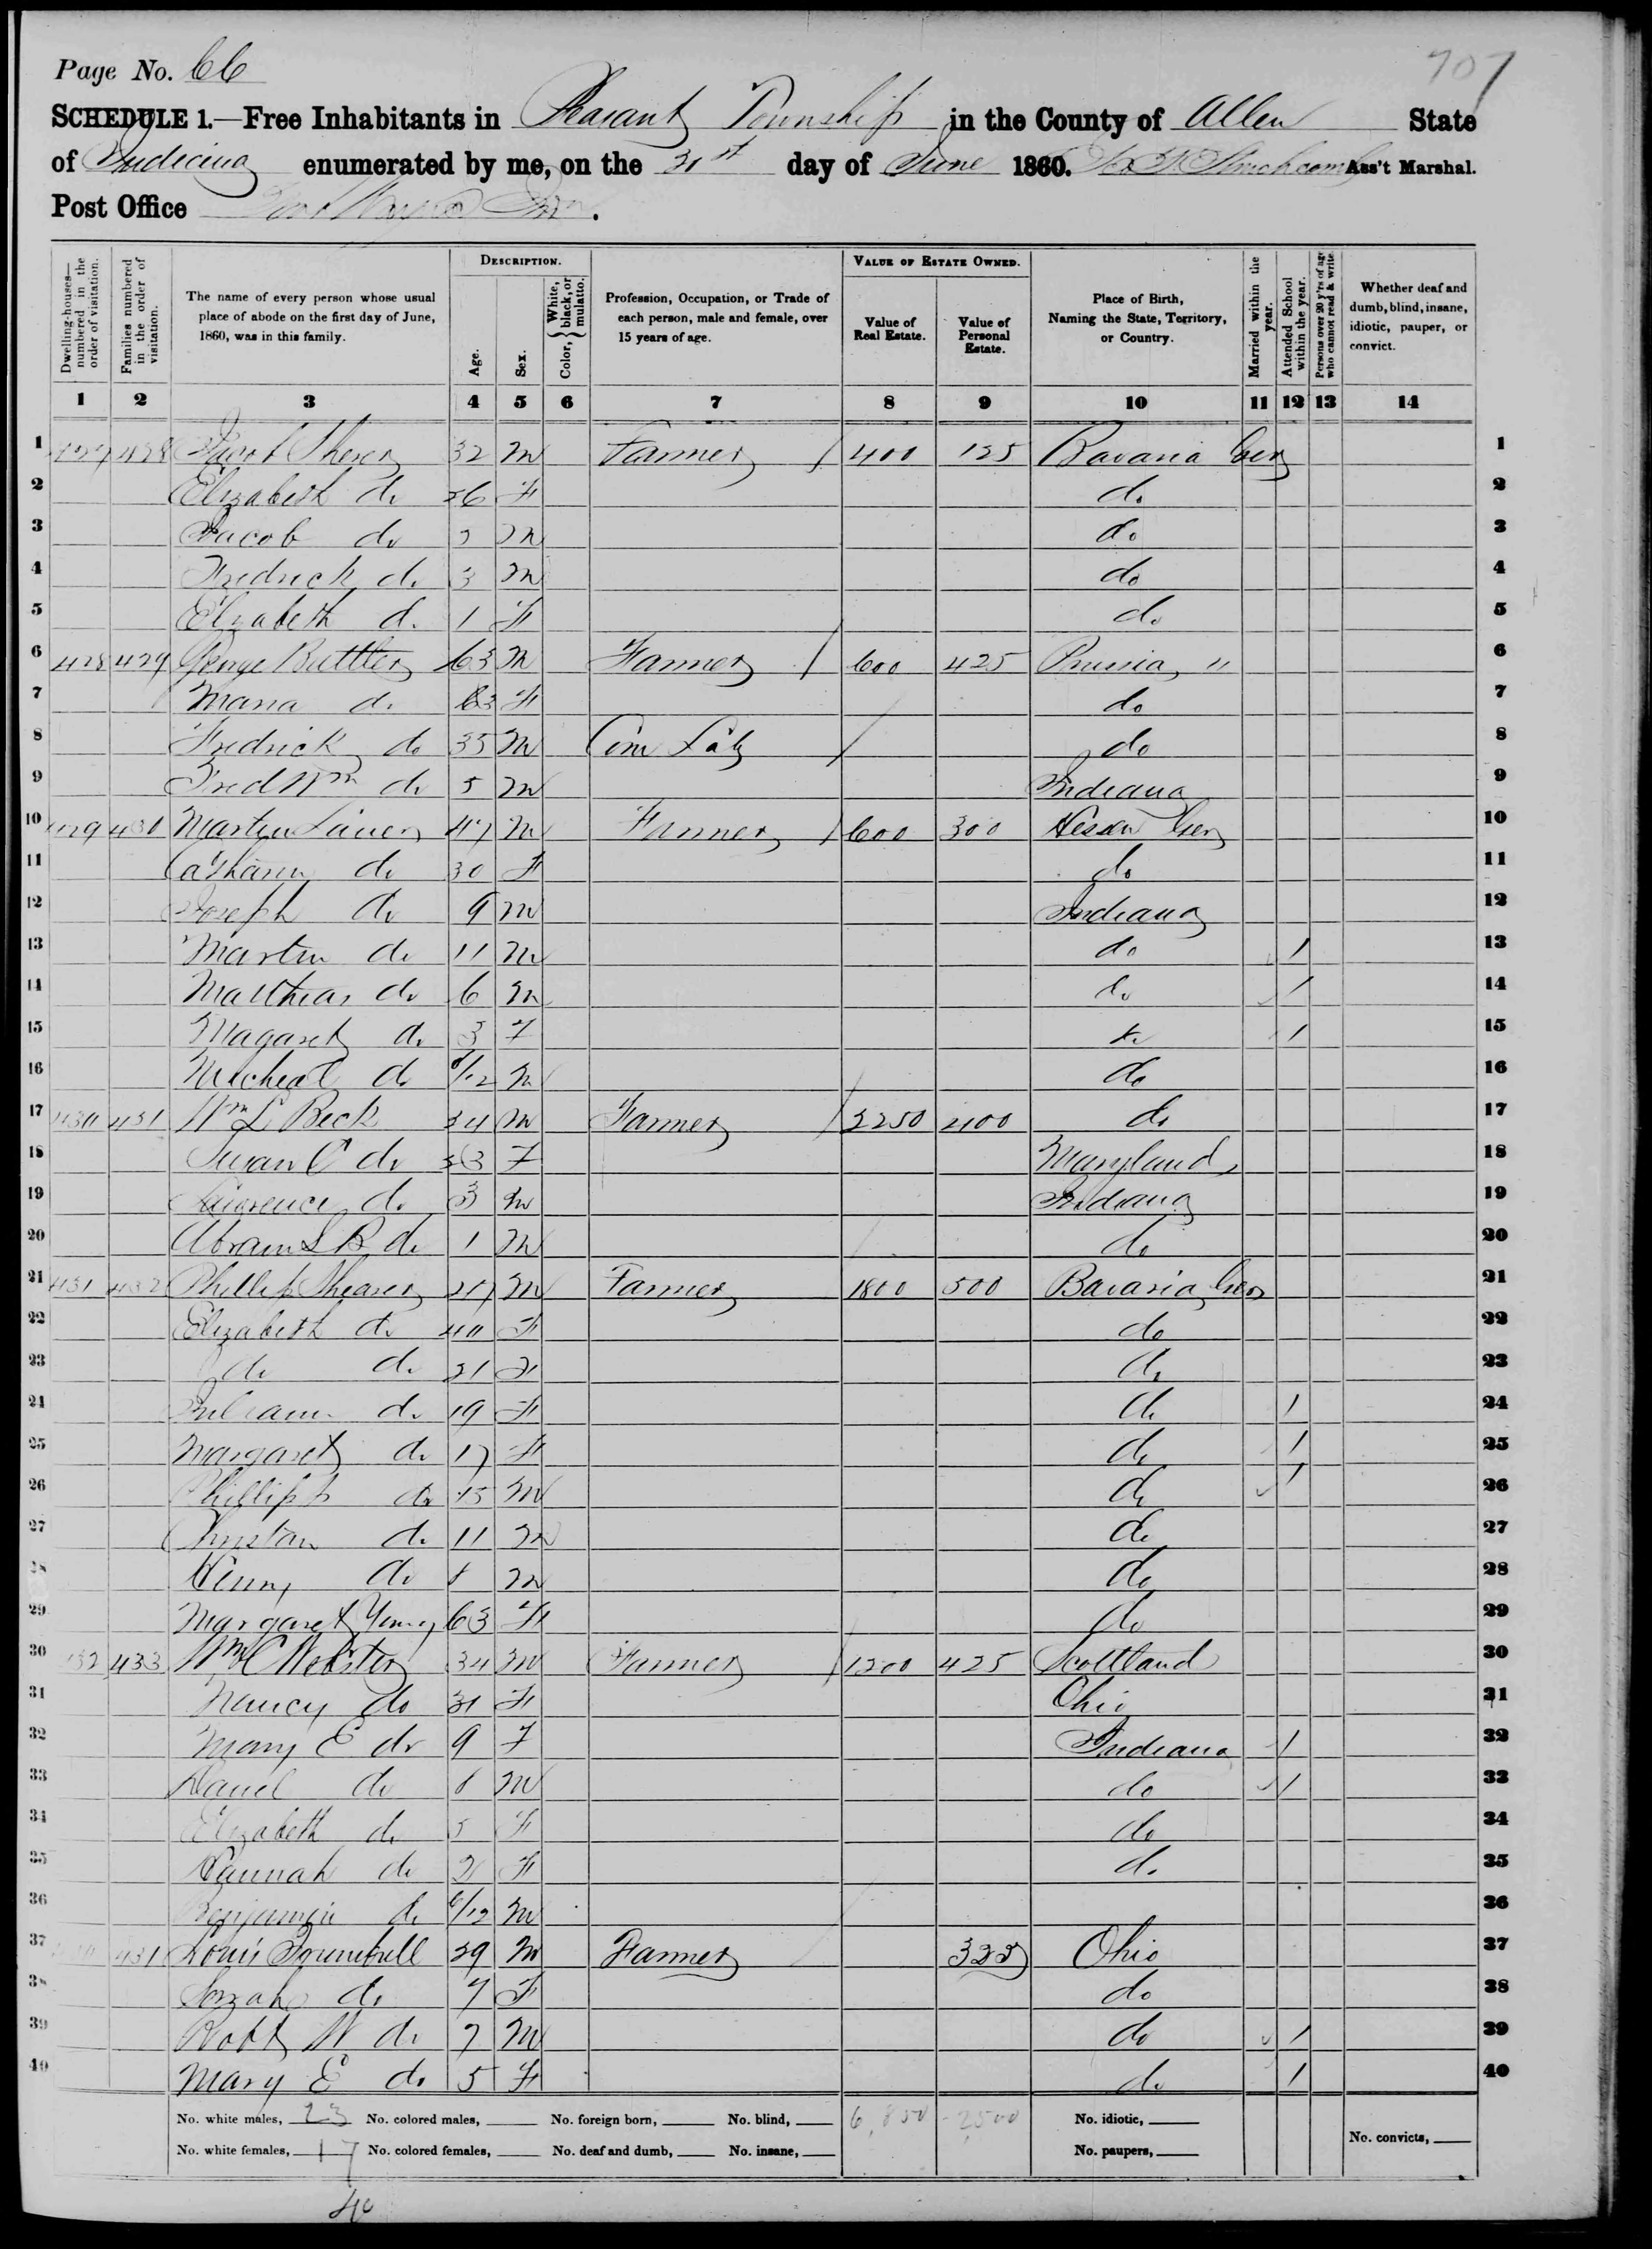 Page No. 66
707
SCHEDULE 1.—Free Inhabitants in Pleasant Township in the County of Allen State
of Indiana enumerated by me, on the 31st day of June 1860. Ass't Marshal.
Post Office Fort Wayne Ind.
Dwelling-houses—numbered in the order of visitation.
Families numbered in the order of visitation.
The name of every person whose usual place of abode on the first day of June, 1860, was in this family.
DESCRIPTION.
Age.
Sex.
Color, { White, black, or mulatto.
Profession, Occupation, or Trade of each person, male and female, over 15 years of age.
VALUE OF ESTATE OWNED.
Value of Real Estate.
Value of Personal Estate.
Place of Birth, Naming the State, Territory, or Country.
Married within the year.
Attended School within the year.
Persons over 20 y'rs of age who cannot read & write.
Whether deaf and dumb, blind, insane, idiotic, pauper, or convict.
1 2 3 4 5 6 7 8 9 10 11 12 13 14
1 427 428 Jacob Sherer 32 M Farmer / 400 125 Bavaria Ger 1
2 Elizabeth do 26 F do 2
3 Jacob do M do 3
4 Fredrick do 3 M do 4
5 Elizabeth do 1 F do 5
6 428 429 George 63 M Farmer / 600 425 Prussia " 6
7 Maria do 63 F do 7
8 Fredrick do 35 M Com Lab / do 8
9 Fred Wm do 5 M Indiana 9
10 429 430 Martin Lauer 47 M Farmer / 600 300 Hessen Ger 10
11 Catharin do 30 F do 11
12 Joseph do 9 M Indiana 12
13 Martin do 11 M do / 13
14 Matthias do 6 M do / 14
15 Magaret do 3 F do / 15
16 Micheal do /12 M do 16
17 430 431 Wm L Beck 34 M Farmer / 2250 400 do 17
18 Susan C do 33 F Maryland 18
19 Lawrence do 3 M Indiana 19
20 Abram L B do 1 M do 20
21 431 432 Phillip Shearer 47 M Farmer 1800 500 Bavaria Ger 21
22 Elizabeth do 40 F do 22
23 do do 21 F do 23
24 Juliann do 19 F do / 24
25 Margaret do 17 F do / 25
26 Phillip do 15 M do / 26
27 Christian do 11 M do 27
28 Henry do 8 M do 28
29 Margaret Young 63 F do 29
30 432 433 Wm C Webster 34 M Farmer / 1200 425 Scottland 30
31 Nancy do 31 F Ohio 31
32 Mary E do 9 F Indiana / 32
33 Daniel do 8 M do / 33
34 Elizabeth do 5 F do 34
35 Hannah do 2 F do 35
36 Benjamin do 6/12 M 36
37 Louis 29 M Farmer 325 Ohio 37
38 do F do 38
39 Robt W do 7 M do / 39
40 Mary E do 5 F do / 40
No. white males, 23 No. colored males, No. foreign born, No. blind, 6,850 2500 No. idiotic,
No. white females, 17 No. colored females, No. deaf and dumb, No. insane, No. paupers, No. convicts,
40